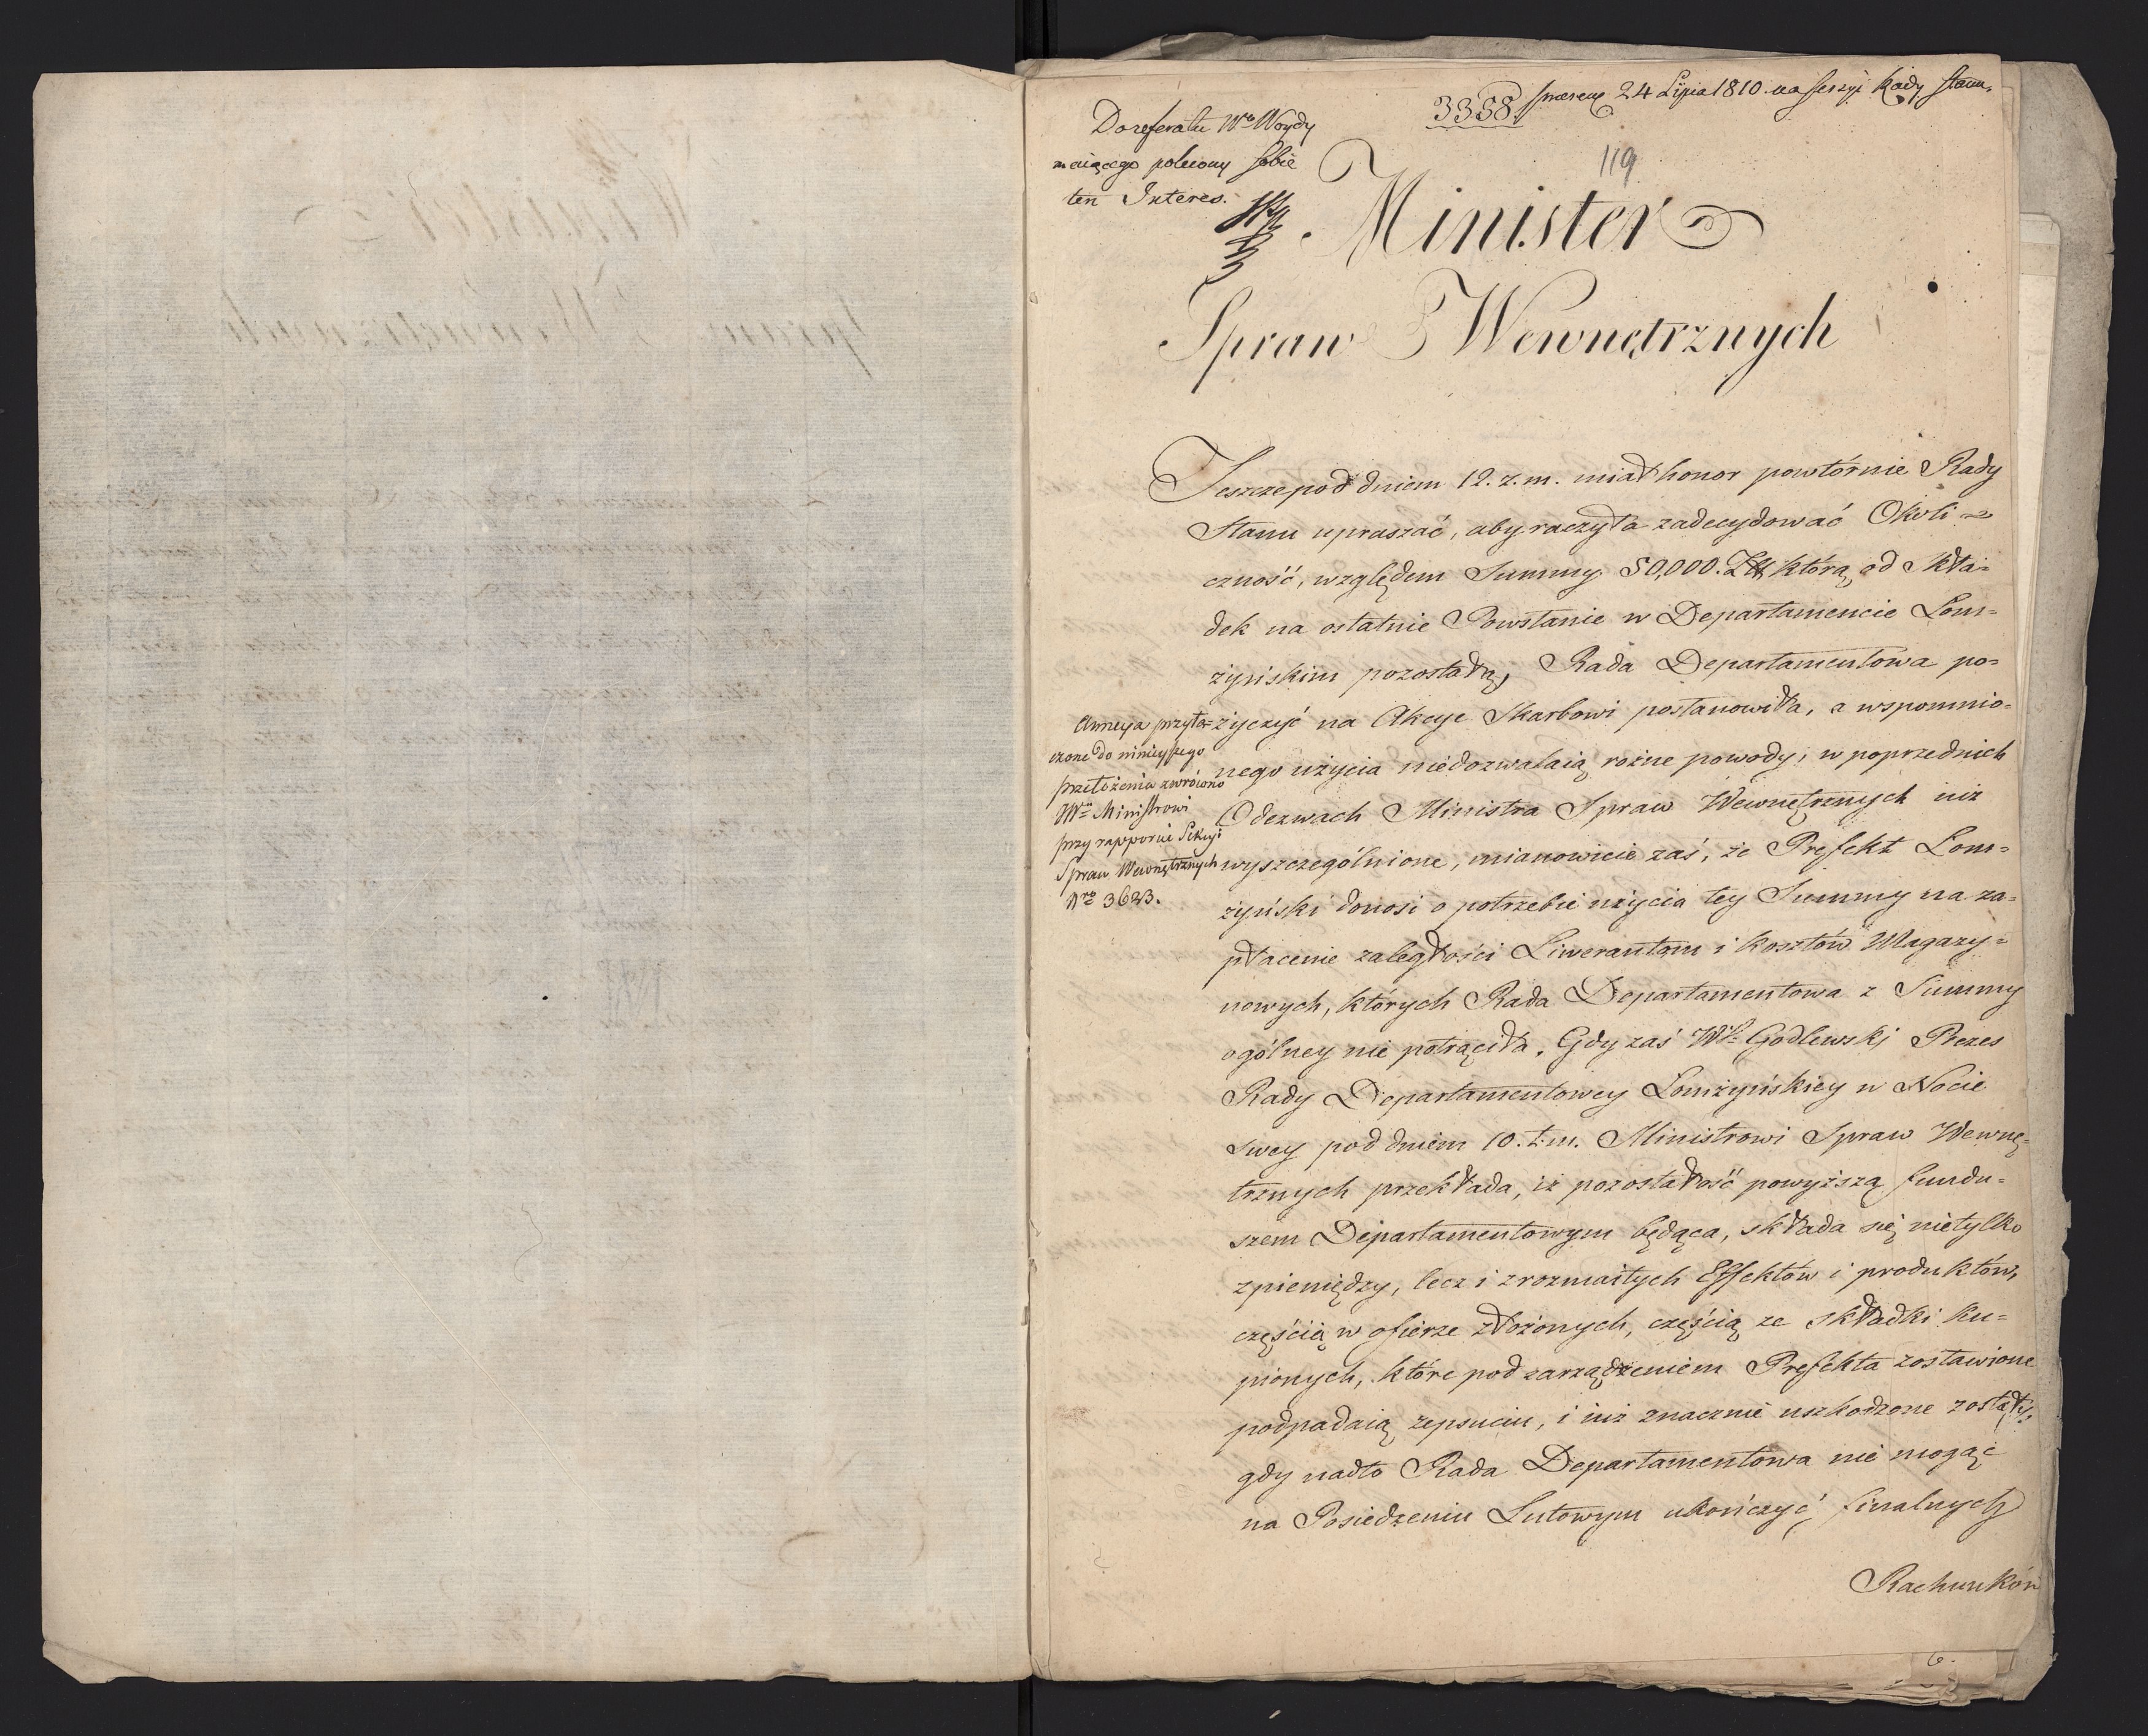 3358. 24 Lipca 1810. na Sessyi Rady Stanu.
Do referatu Wo Woydy
maiącego polecony sobie
ten Interes.
119
Minister
Spraw Wewnętrznych
Jeszcze pod dniem 12. z. m. miał honor powtórnie Rady
Stanu upraszać, aby raczyła zadecydować Okoli=
czność, względem Summy 50,000. Zł którą, od Skła=
dek na ostatnie Powstanie w Departamencie Łom=
żyńskim pozostałą, Rada Departamentowa po=
życzyć na Akcye Skarbowi postanowiła, a wspomnio=
nego użycia niedozwalaią rożne powody, w poprzednich
Odezwach Ministra Spraw Wewnętrznych iuż
wyszczególnione, mianowicie zaś, że Prefekt Łom=
żyński donosi o potrzebie użycia tey Summy na za=
płacenie zaległości Liwerantom i kosztów Magazy=
nowych, których Rada Departamentowa z Summy
ogólney nie potrąciła. Gdy zaś W. Godlewski Prezes
Rady Departamentowey Łomżyńskiey w Nocie
swey pod dniem 10. t. m. Ministrowi Spraw Wewnę=
trznych przekłada, iż pozostałość powyższą fundu=
szem Departamentowym będąca, składa się nietylko
z pieniędzy, lecz i z rozmaitych Effektów i produktów,
częścią w ofierze złożonych, częścią ze składki ku=
pionych, które pod zarządzeniem Prefekta zostawione
podpadaią zepsuciu, i iuż znacznie uszkodzone zostały,
gdy nadto Rada Departamentowa nie mogąc
na Posiedzeniu Lutowym ukończyć finalnych
Rachunków
Annexa przyto=
czone do ninieyszego
przełożenia zwrócono
Wmu Ministrowi
przy rapporcie Sekcyi
Spraw Wewnętrznych
Nro 3623.
6.